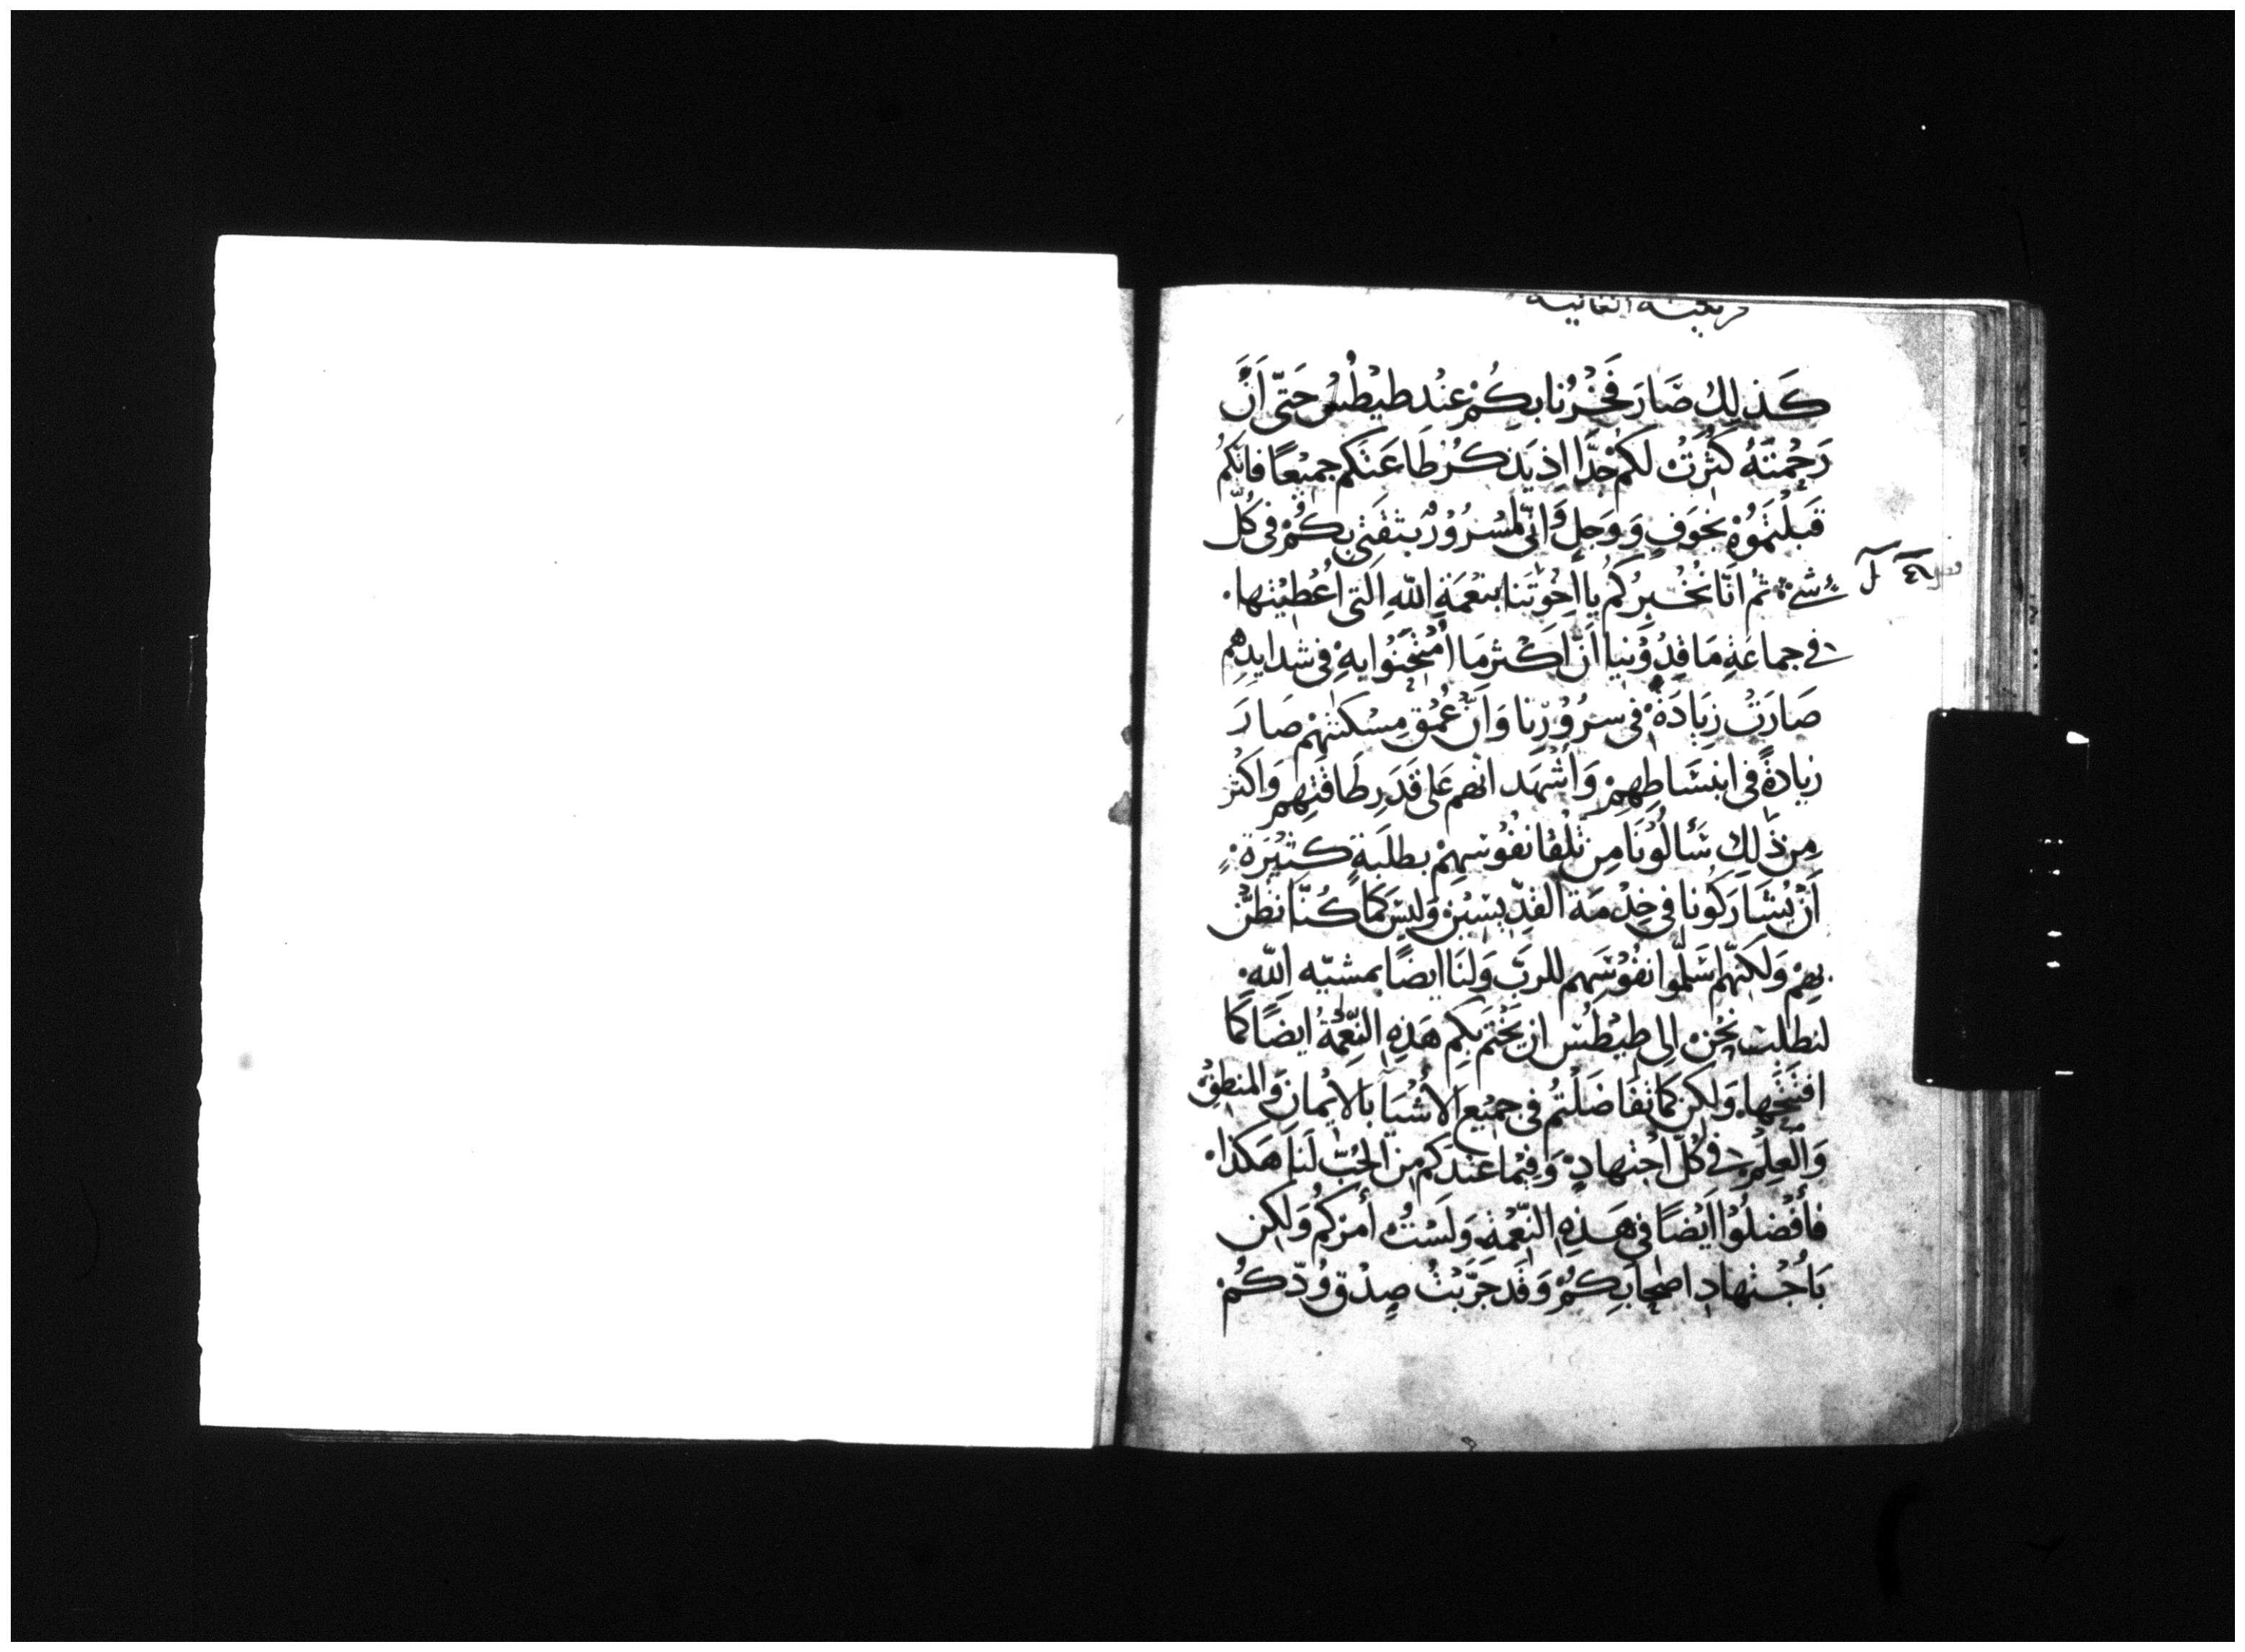 كَذلِكَ صَارَ فَخْرُنا بِكُمْ عِنْد طيْطُس حَتّى اَنَّ
رَحْمتَهُ كَثُرَتْ لكمْ جدًّا اِذ يَذكُرُ طَاعَتَكُم جميْعًا فانكمُ
قَبلْتمَوُهُ بخوَفٍ وَوَجلٍ وَانّى لمَسْرُوْرٌ بثقَتي بِكُمْ فى كُلّ
شئ ثم انّا نُخْبِرُكُمُ يا اخوَتَنا بنعْمَةِ اللّهِ التى اُعْطيْنها
فى جماعَةِ مَاقِدُوْنيا اَنّ اكْثر مَا اُمتُحِنُوا بِهِ فى شدايدِهمِ
صَارَتْ زيَادَةً فى سرُوْرِنا وَانّ عُمْقَ مِسْكَنتِهمْ صَارَ
زيادةً فى ابنسَاطِهمِ وَاشْهَد انهم عَلى قَدَرِ طَاقتِهمِ وَاكْثر
مِن ذَلكَ سَألُوْنَا مِن تلْقا نفُوْسِهِمْ بطلَبةٍ كثيْرَةٍ
اَنْ يُشَارَكُونا فى خِدْمَة القدّيسْيْن وَليسَ كمَا كُنّا نظُنّ
بِهمْ وَلكنّهم سَلّموا نفُوْسَهم للربّ وَلنَا ايضًا بمشيّه اللّهِ
لنطلب نحْن الى طيْطُس ان يَختم بكم هَذِهِ النِّعْمَةُ ايضًا كمَا
افتتحَها وَلكن كمَا تفَاضَلْتُم فى جميْع الأشْيَا بالايْمانِ وَالمنطِقِ
وَالْعِلِمْ فى كلّ اجْتهادٍ وَفيْما عنْدَكم مِن الحُبّ لَنا هَكذا
فأفْضلُوْا ايْضًا فى هَذِهِ النّعْمَةِ وَلَسْتُ أمرُكمُ وَلكن
بَاجْتهَادِ اصْحَابكُمْ وَقد جَرّبْتُ صِدْق وُدّكُمْ